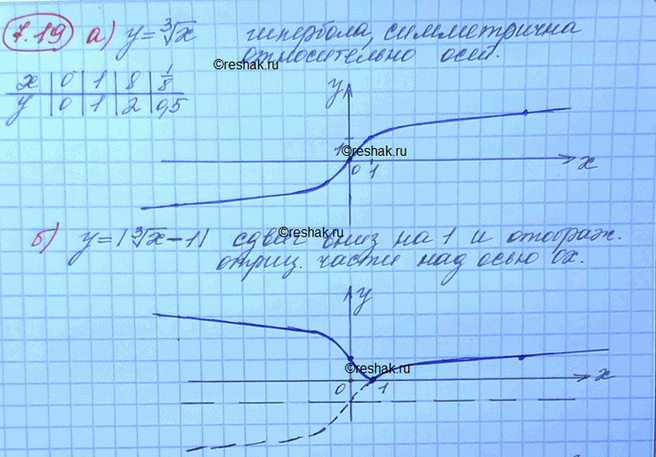 7.19 а) y = ∛x гипербола, симметрична
относительно осей.
©reshak.ru
x | 0 | 1 | 8 | 1/8
y | 0 | 1 | 2 | 0,5
y
1
©reshak.ru
0 1 x
б) y = |∛x − 1| сдвиг вниз на 1 и отображ.
©reshak.ru
отриц. части над осью Ox.
y
©reshak.ru
0 1 x